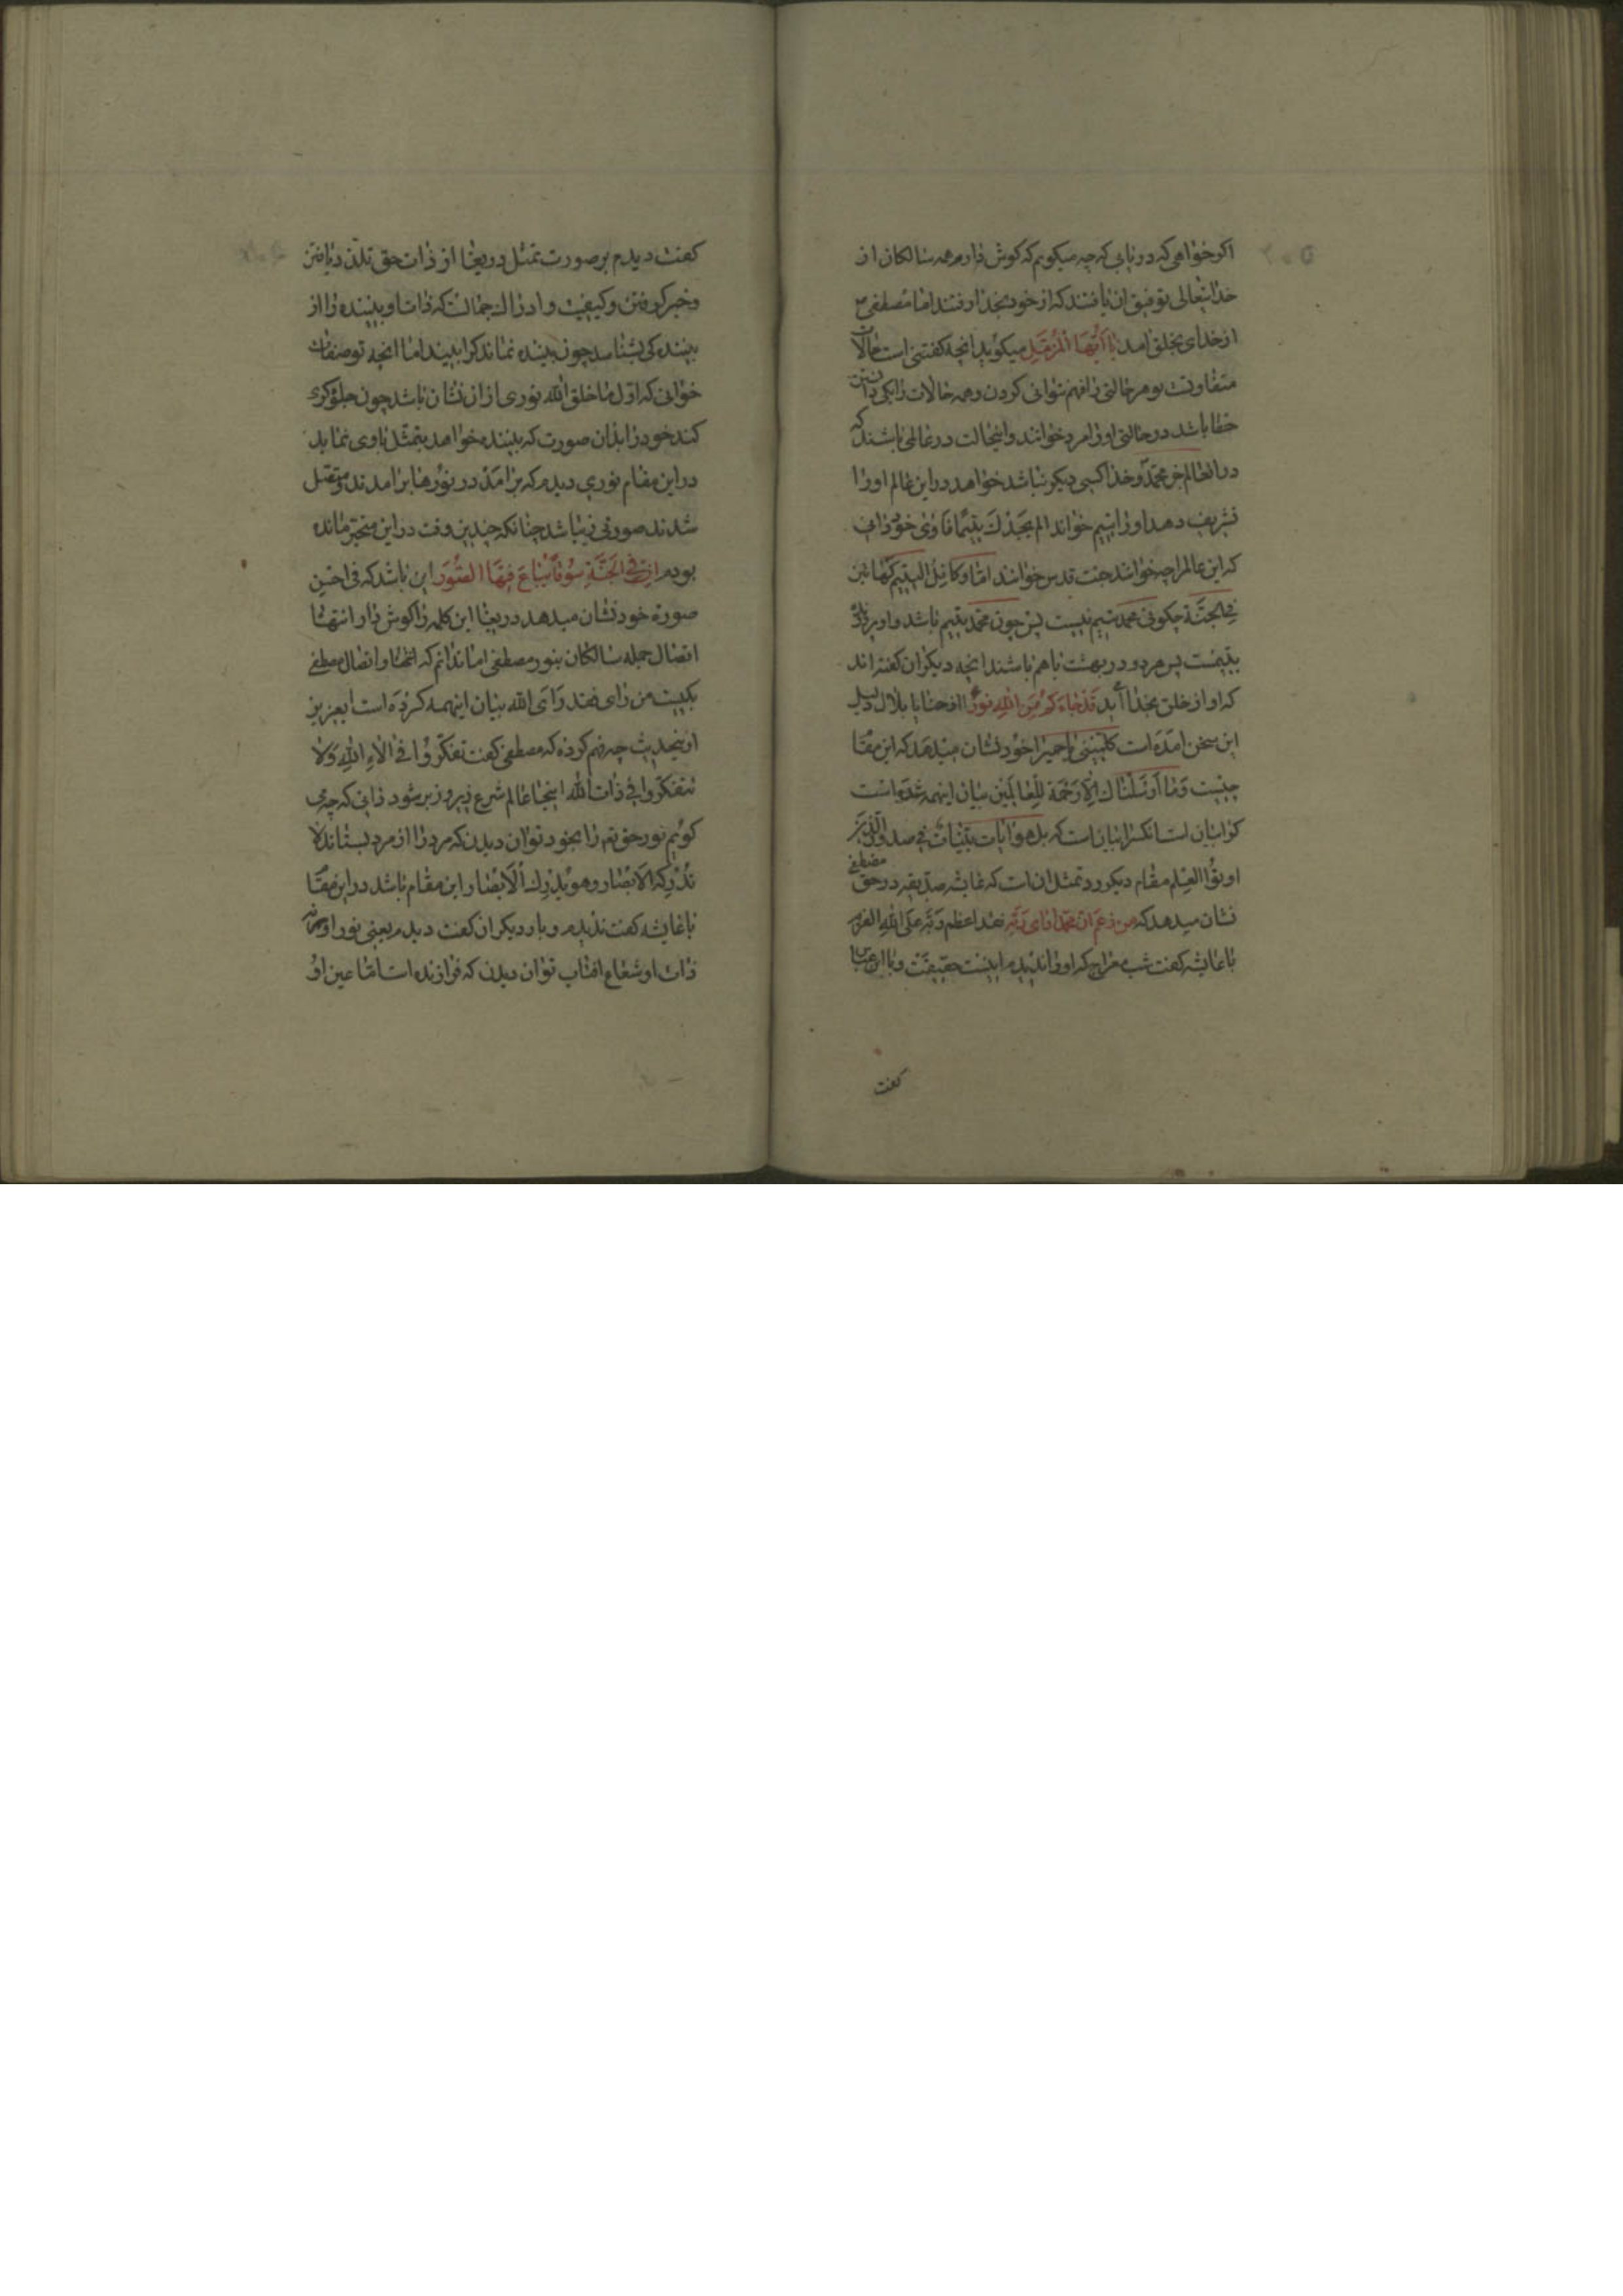 ۲۰۵
اکر خواهی که دریابی که چه میکویم که کوش دار و همه سالکان از
خدایتعالی توفیق ان یافتند که از خود بخدا رفتند اما مصطفی
از خدای بخلق امد یا ایها المزمل میکوید انچه کفتنی است حالات
متفاوت بود هر حالتی را فهم توانی کردن و همه حالات را یکی دانستن
خطا باشد در حالتی او را مرد خوانند و اینحالت در عالمی باشند که
در انعالم جز محمد و خدا کسی دیکر نباشد خواهد در این عالم او را
تشریف دهد او را یتیم خواند الم یجدک یتیما فاوی خود دانی
که این عالم را چه خوانند جنت قدس خوانند انا و کافل الیتیم کهاتین
فی الجنة چکونی محمد یتیم نیست پس چون محمد یتیم باشد و او
یتیمست پس هر دو در بهشت با هم باشند انچه دیکران کفته اند
که او از خلق بخدا آید قد جاءکم من الله نور ارحنا یا بلال دلیل
این سخن امده است کلمینی یا حمیرا خود نشان میدهد که این مقام
چیست وما ارسلناک الا رحمة للعالمین بیان اینهمه شده است
کرا بیان است انکس را بیان است که بل هو ایات بینات فی صدور الذین
اوتوا العلم مقام دیکر در تمثل ان است که عایشه صدیقه در حق مصطفی
نشان میدهد که من زعم ان محمدا رای ربه فقد اعظم علی الله الفریه
با عایشه کفت شب معراج که او را ندیدم اینست حقیقت و با ابن عباس
کفت
کفت دیدم بر صورت تمثل دریغا از ذات حق تلذذ یافتن
و خبر کرفتن و کیفیت و ادراک محالست که ذات او بیننده را از
بیننده کی بستاند چون بیننده نماند کرا بیند اما انچه تو صفات
خوانی که اول ما خلق الله نوری از ان نشان باشد چون جلوکری
کند خود را بدان صورت که بیننده خواهد بتمثل باوی نماید
در این مقام نوری دیدم که بر امد در نورها بر امدند و متصل
شدند صورتی زیبا شد چنانکه چندین وقت در این متحیر مانده
بودم ان فی الجنة سوقا یباع فیها الصور این باشد که فی احسن
صورة خود نشان میدهد دریغا این کلمه را کوش دار انتها
اتصال جمله سالکان بنور مصطفی اما ندانم که انتها و اتصال مصطفی
بکیست من رانی فقد رای الله بیان اینهمه کرده است ایعزیز
از اینحدیث چه فهم کرده که مصطفی کفت تفکروا فی الاء الله ولا
تتفکروا فی ذات الله اینجا عالم شرع زیر و زبر شود دانی که چه می
کویم نور حق تع را بخود توان دیدن که مرد را از مرد بستاند لا
تدرکه الابصار وهو یدرک الابصار این مقام باشد در این مقام
با عایشه کفت ندیدم و بار دیکر ان کفت دیدم یعنی نور او نه
ذات او شعاع افتاب توان دیدن که فرازنده است اما عین او